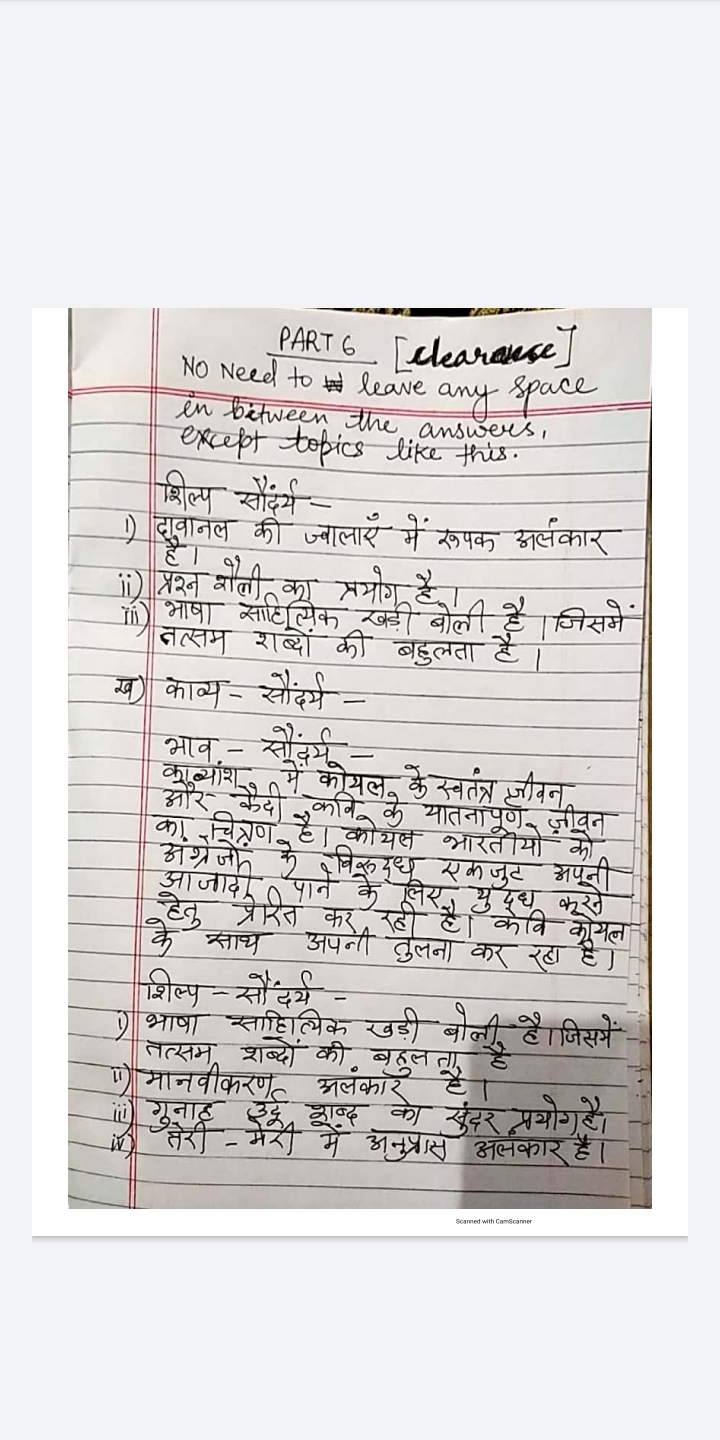 PART 6 [clearance]
NO Need to leave any space
in between the answers,
except topics like this.
शिल्प सौंदर्य –
i) दावानल की ज्वालाएँ में रूपक अलंकार
है।
ii) प्रश्न शैली का प्रयोग है।
iii) भाषा साहित्यिक खड़ी बोली है। जिसमें
तत्सम शब्दों की बहुलता है।
ख) काव्य – सौंदर्य –
भाव – सौंदर्य –
काव्यांश में कोयल के स्वतंत्र जीवन
और कैदी कवि के यातनापूर्ण जीवन
का चित्रण है। कोयल भारतीयों को
अंग्रेजों के विरूद्ध एकजुट अपनी
आजादी पाने के लिए युद्ध करने
हेतु प्रेरित कर रही है। कवि कोयल
के साथ अपनी तुलना कर रहा है।
शिल्प – सौंदर्य –
i) भाषा साहित्यिक खड़ी बोली है। जिसमें
तत्सम शब्दों की बहुलता है
ii) मानवीकरण अलंकार है।
iii) गुनाह उर्दू शब्द का सुंदर प्रयोग है।
iv) तेरी – मेरी में अनुप्रास अलंकार है।
Scanned with CamScanner